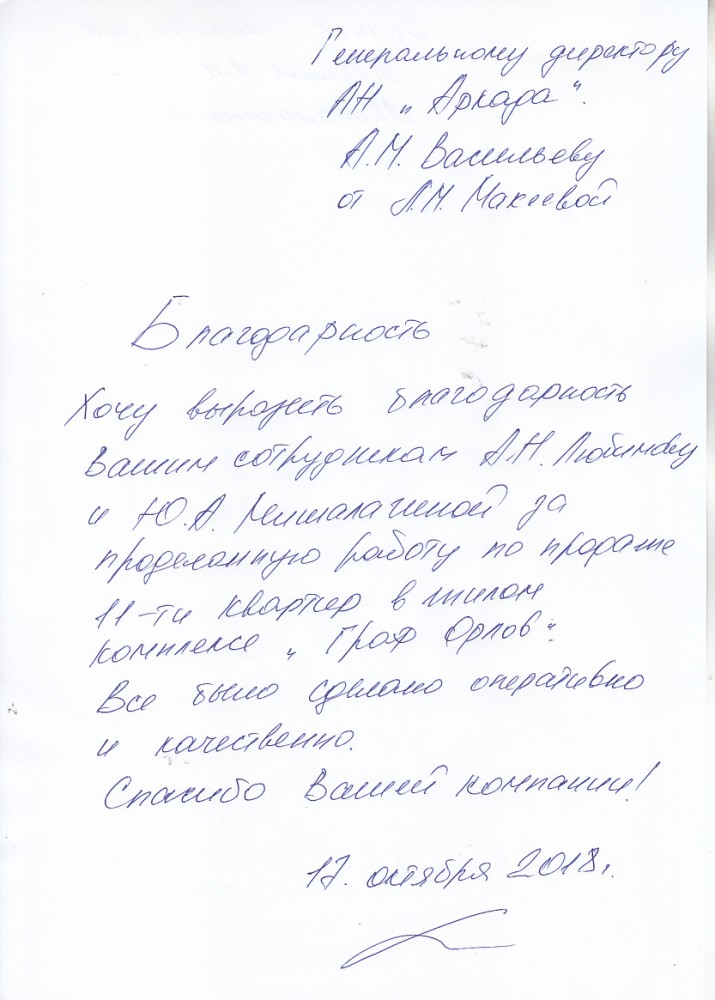 Генеральному директору
АН „Аркада“.
А.М. Васильеву
от Л.М. Макеевой
Благодарность
Хочу выразить благодарность
Вашим сотрудникам А.Н. Любимову
и Ю.А. за
проделанную работу по продаже
11-ти квартир в жилом
комплексе „Граф Орлов“.
Все было сделано оперативно
и качественно.
Спасибо Вашей компании!
17. октября 2018г.